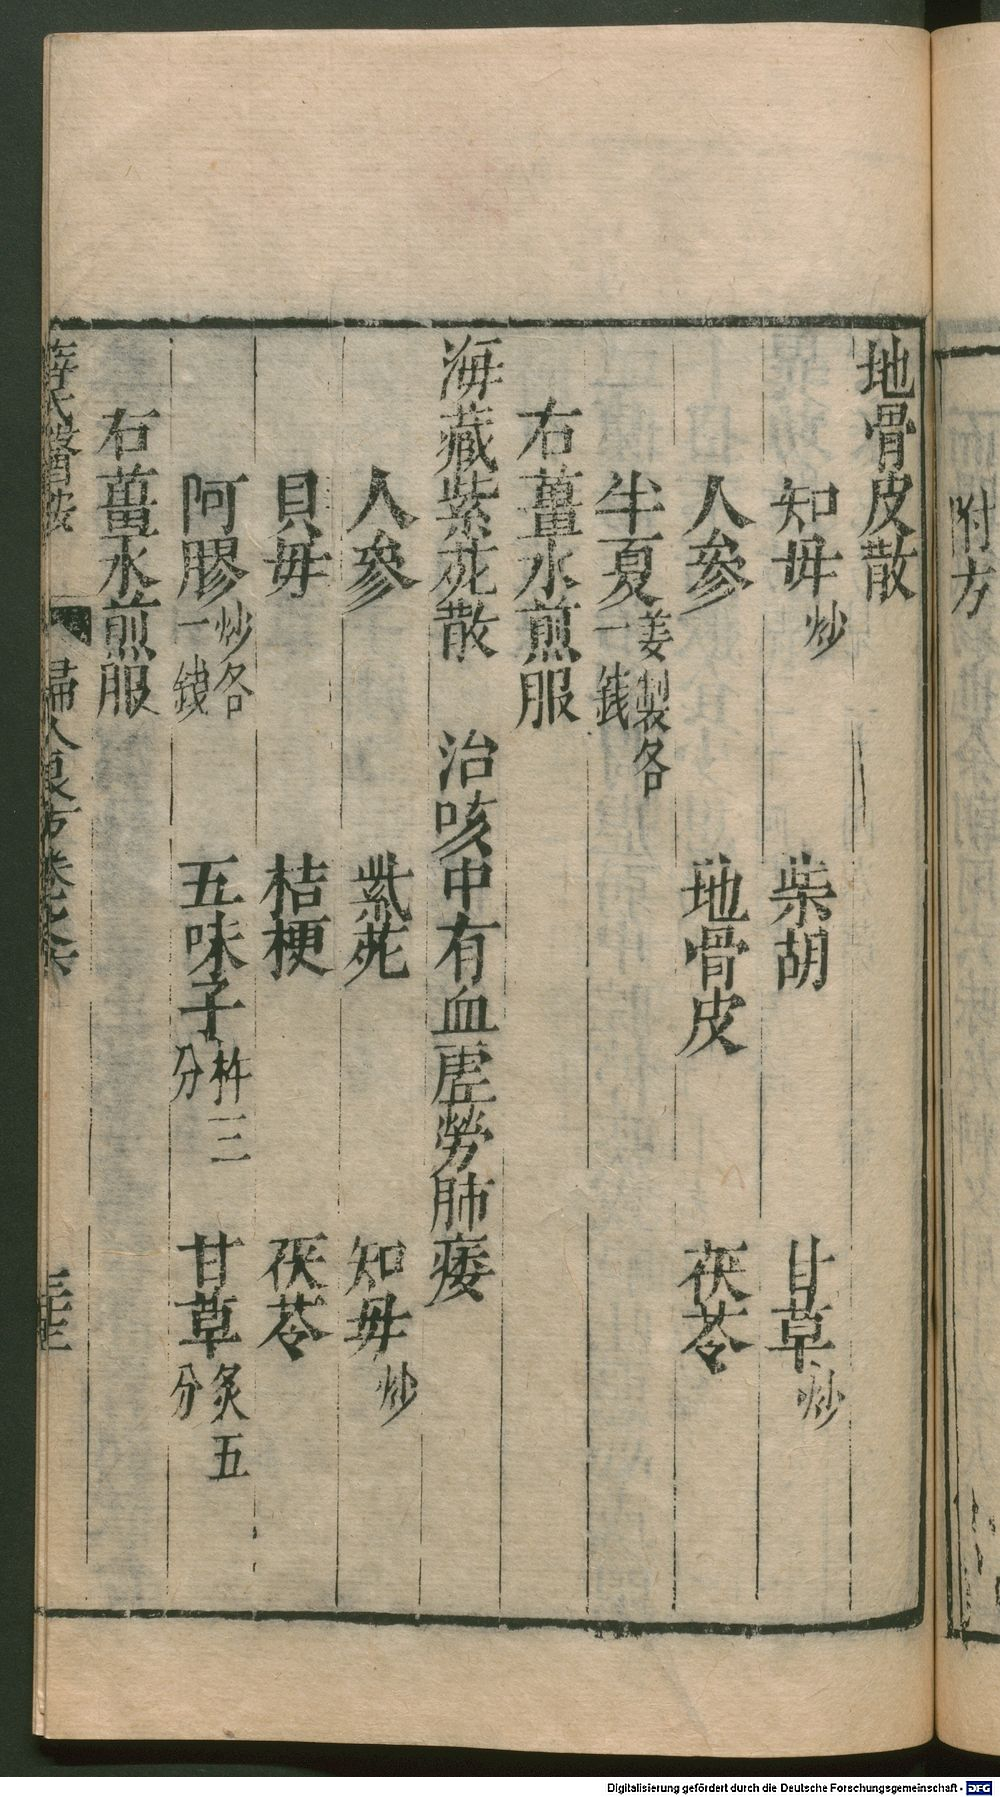 附方
地骨皮散
知母炒 柴胡 甘草炒
人參 地骨皮 茯苓
半夏姜製各一錢
右薑水煎服
海藏紫菀散 治咳中有血虛勞肺痿
人參 紫菀 知母炒
貝母 桔梗 茯苓
阿膠炒各一錢 五味子杵三分 甘草炙五分
右薑水煎服
薛氏醫按 婦人良方卷之六
Digitalisierung gefördert durch die Deutsche Forschungsgemeinschaft - DFG